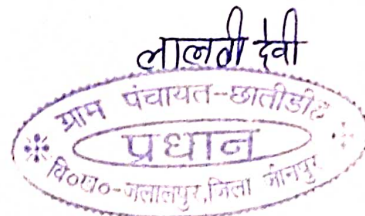 लालती देवी
ग्राम पंचायत-छातीडीह
प्रधान
वि०ख०-जलालपुर,जिला जौनपुर